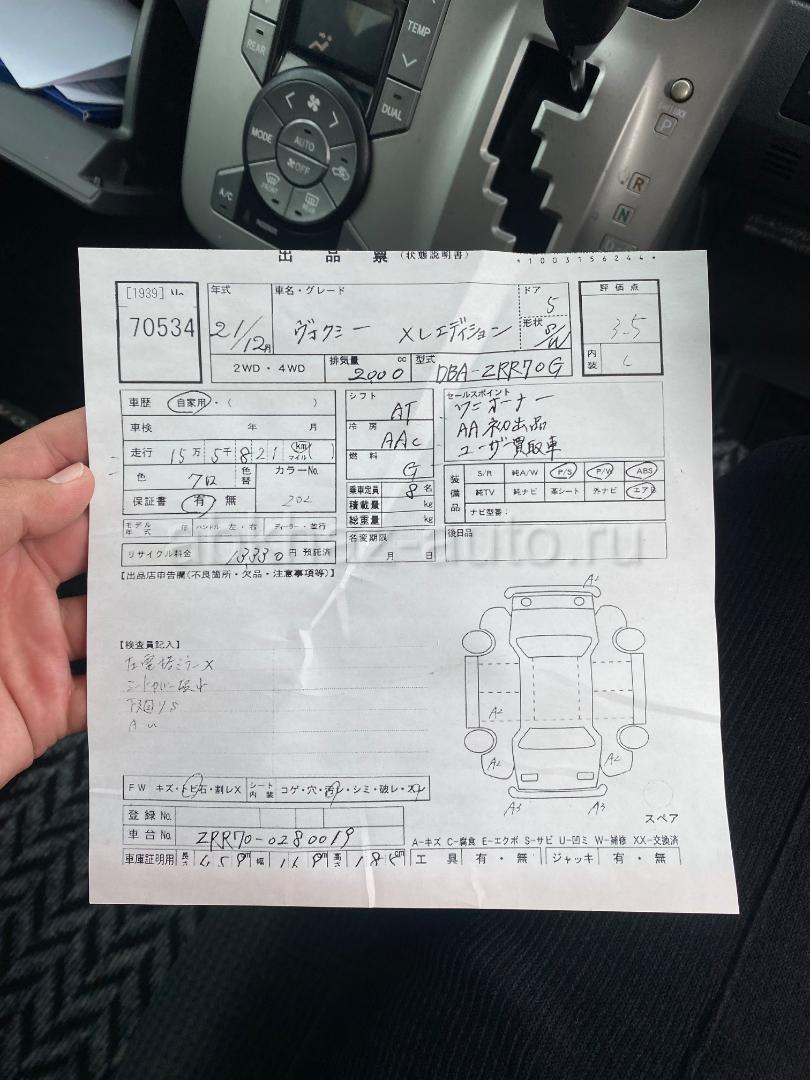 TEMP
REAR
DUAL
MODE
AUTO
OFF
FRONT
REAR
A/C
P
R
N
出品票 (状態説明書)
*10031562444*
[1939] No.
70534
年式
21/12月
車名・グレード
ヴォクシー XLエディション
ドア
5
形状
評価点
3.5
内装
C
2WD・4WD
排気量
2000 cc
型式
DBA-ZRR70G
車歴 自家用・( )
車検 年 月
走行 15万5千821 km マイル( )
色 クロ
色替
カラーNo.
202
保証書 有 無
モデル年式 年 ハンドル 左・右 ディーラー・並行
リサイクル料金 13330円 預託済
シフト AT
冷房 AAC
燃料 G
乗車定員 8名
積載量 kg
総重量 kg
名変期限 月 日
セールスポイント
ワンオーナー
AA初出品
ユーザー買取車
装備品
S/R 純A/W P/S P/W ABS
純TV 純ナビ 革シート 外ナビ エアB
ナビ型番:
後日品
apkhaz-auto.ru
【出品店申告欄(不良箇所・欠品・注意事項等)】
【検査員記入】
シートカバー
下回りS
A U
A2
A2
A2
A2
A3
A3
スペア
FW キズ・トビ石・割レX シート内装 コゲ・穴・汚レ・シミ・破レ・スレ
登録No.
車台No. ZRR70-0280019
A-キズ C-腐食 E-エクボ S-サビ U-凹ミ W-補修 XX-交換済
車庫証明用 長さ 459 cm 幅 169 cm 高さ 185 cm
工具 有・無 ジャッキ 有・無